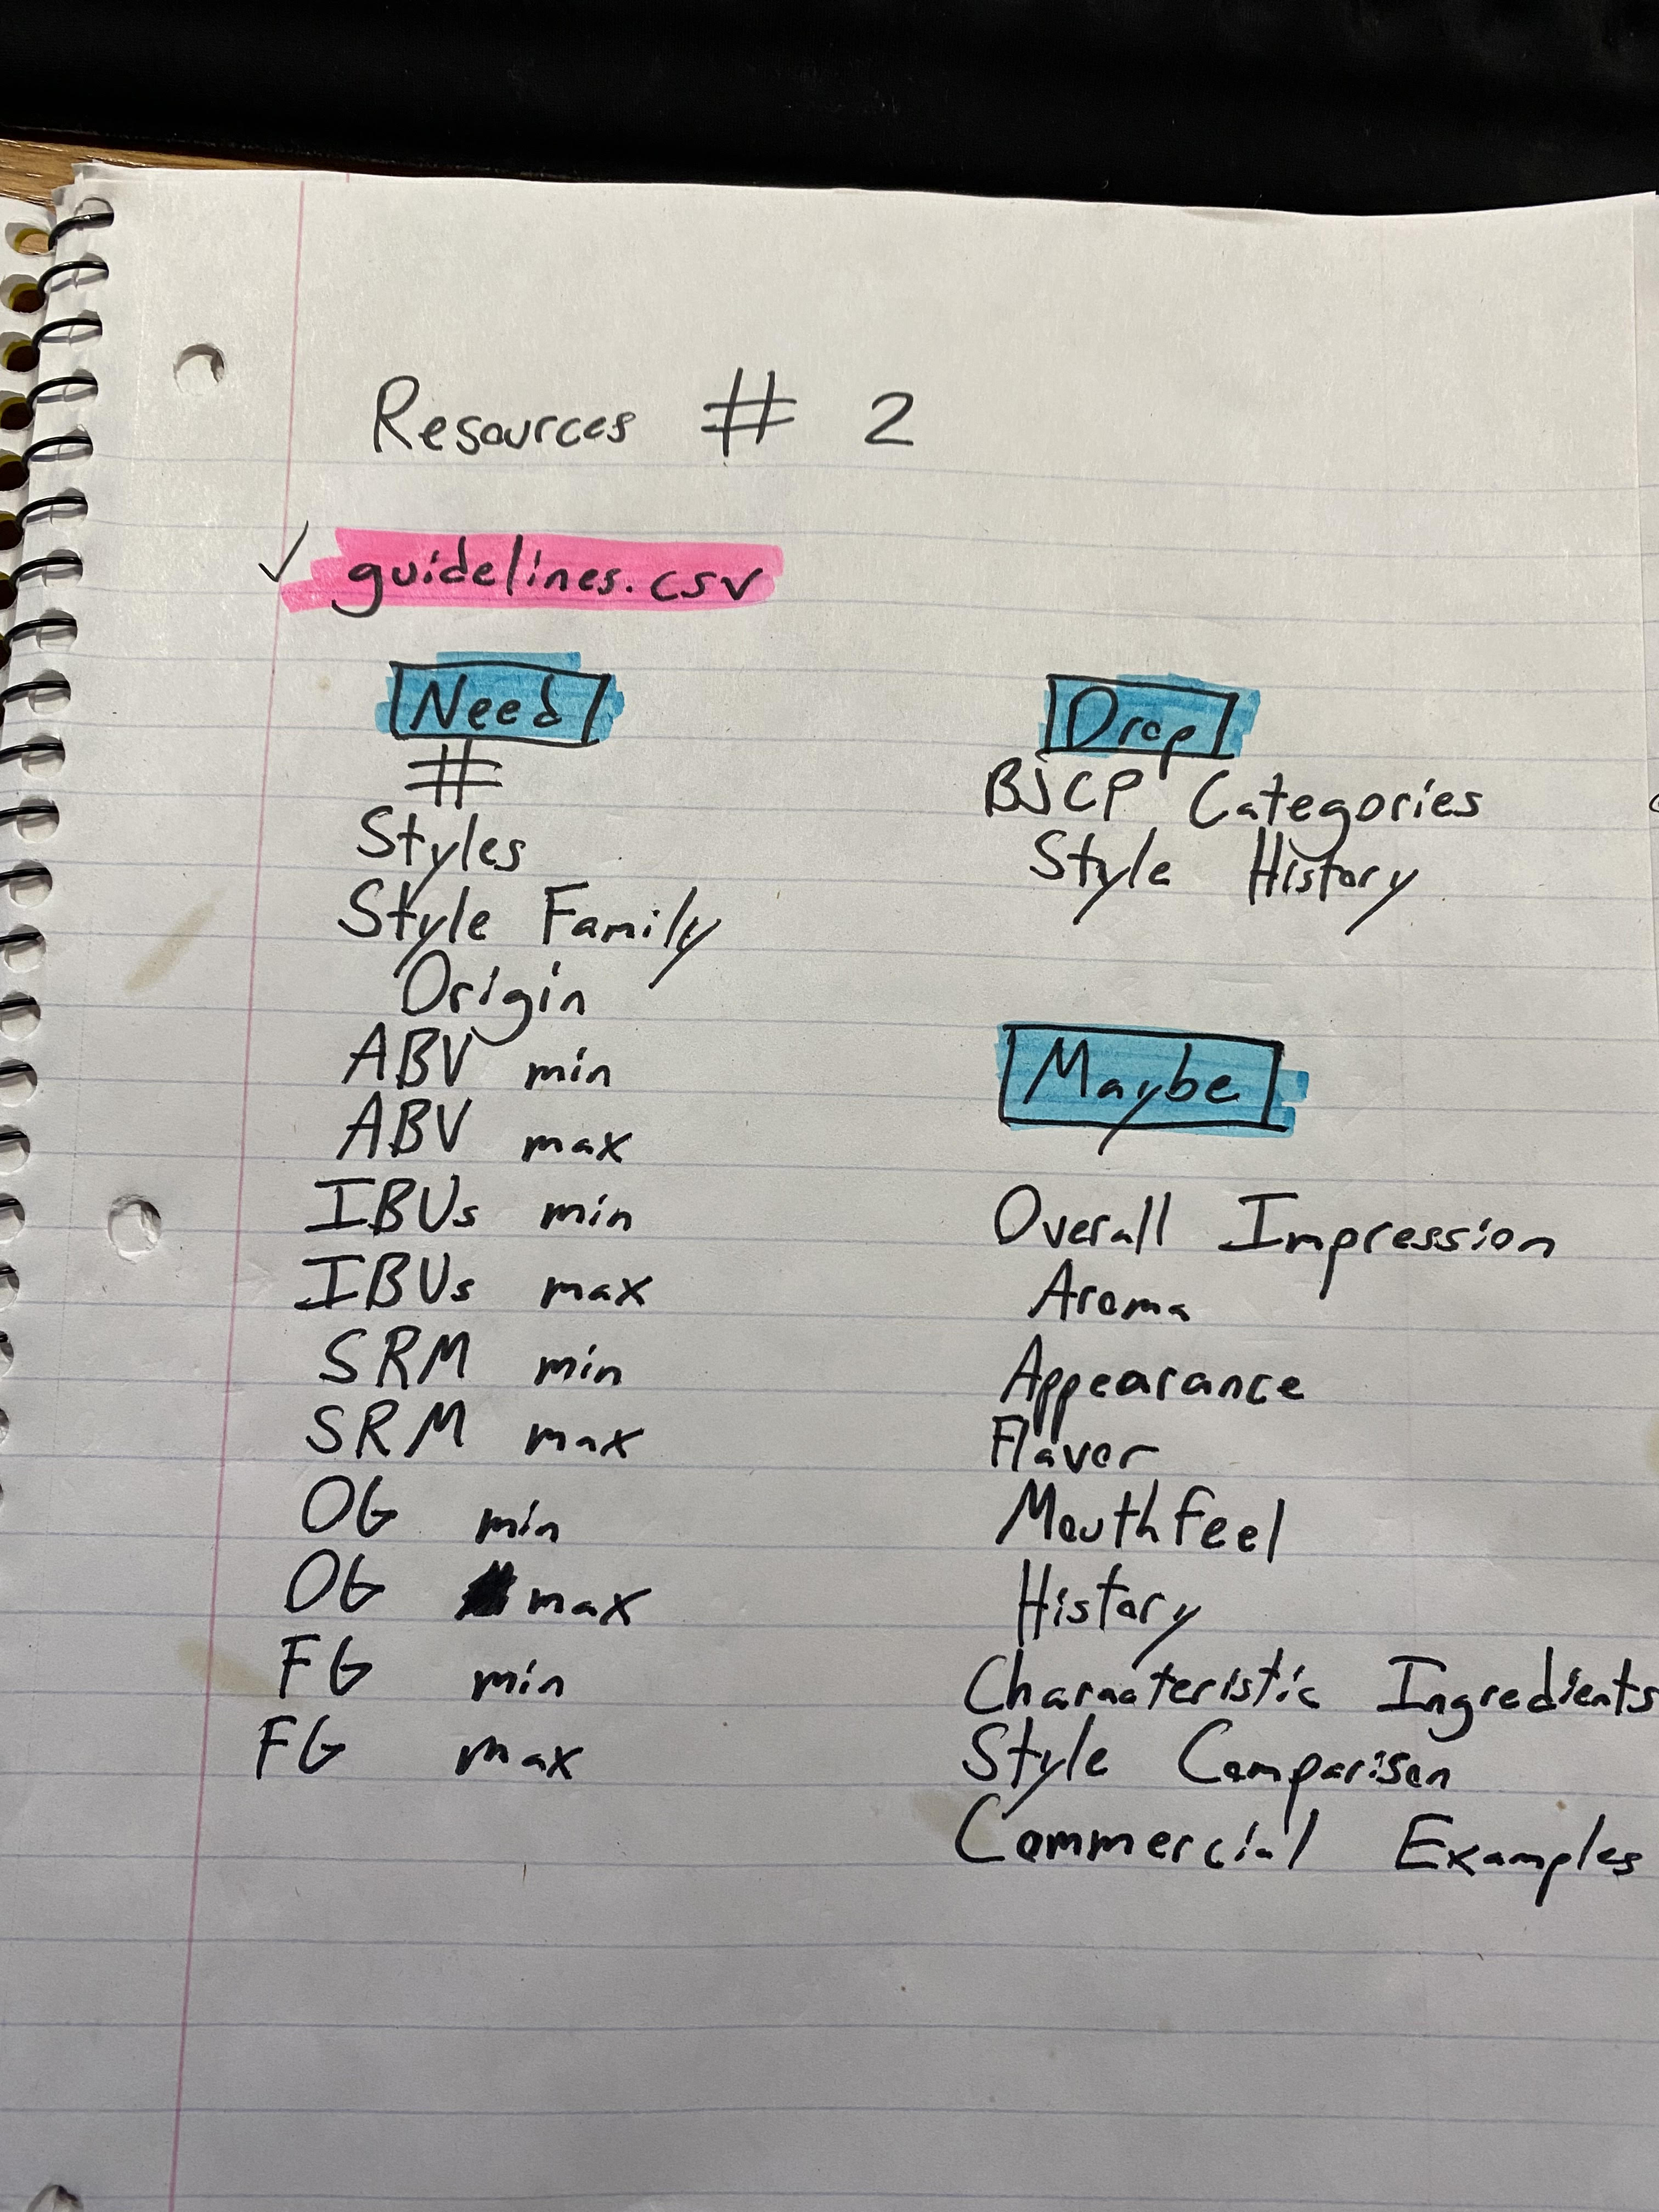 Resources # 2
✓ guidelines.csv
Need
#
Styles
Style Family
Origin
ABV min
ABV max
IBUs min
IBUs max
SRM min
SRM max
OG min
OG max
FG min
FG max
Drop
BJCP Categories
Style History
Maybe
Overall Impression
Aroma
Appearance
Flavor
Mouthfeel
History
Characteristic Ingredients
Style Comparison
Commercial Examples